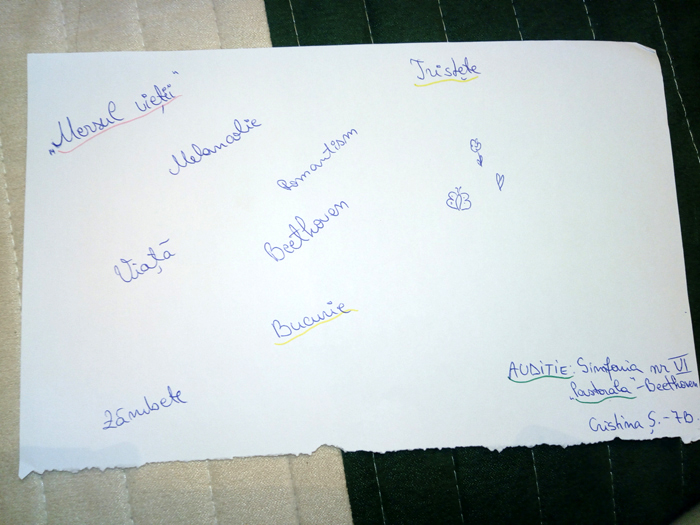 „Mersul vieții"
Tristețe
Melancolie
Romantism
Viață
Beethoven
Bucurie
Zâmbete
AUDIȚIE: Simfonia nr VI
„Pastorala"-Beethoven
Cristina Ș.-7B